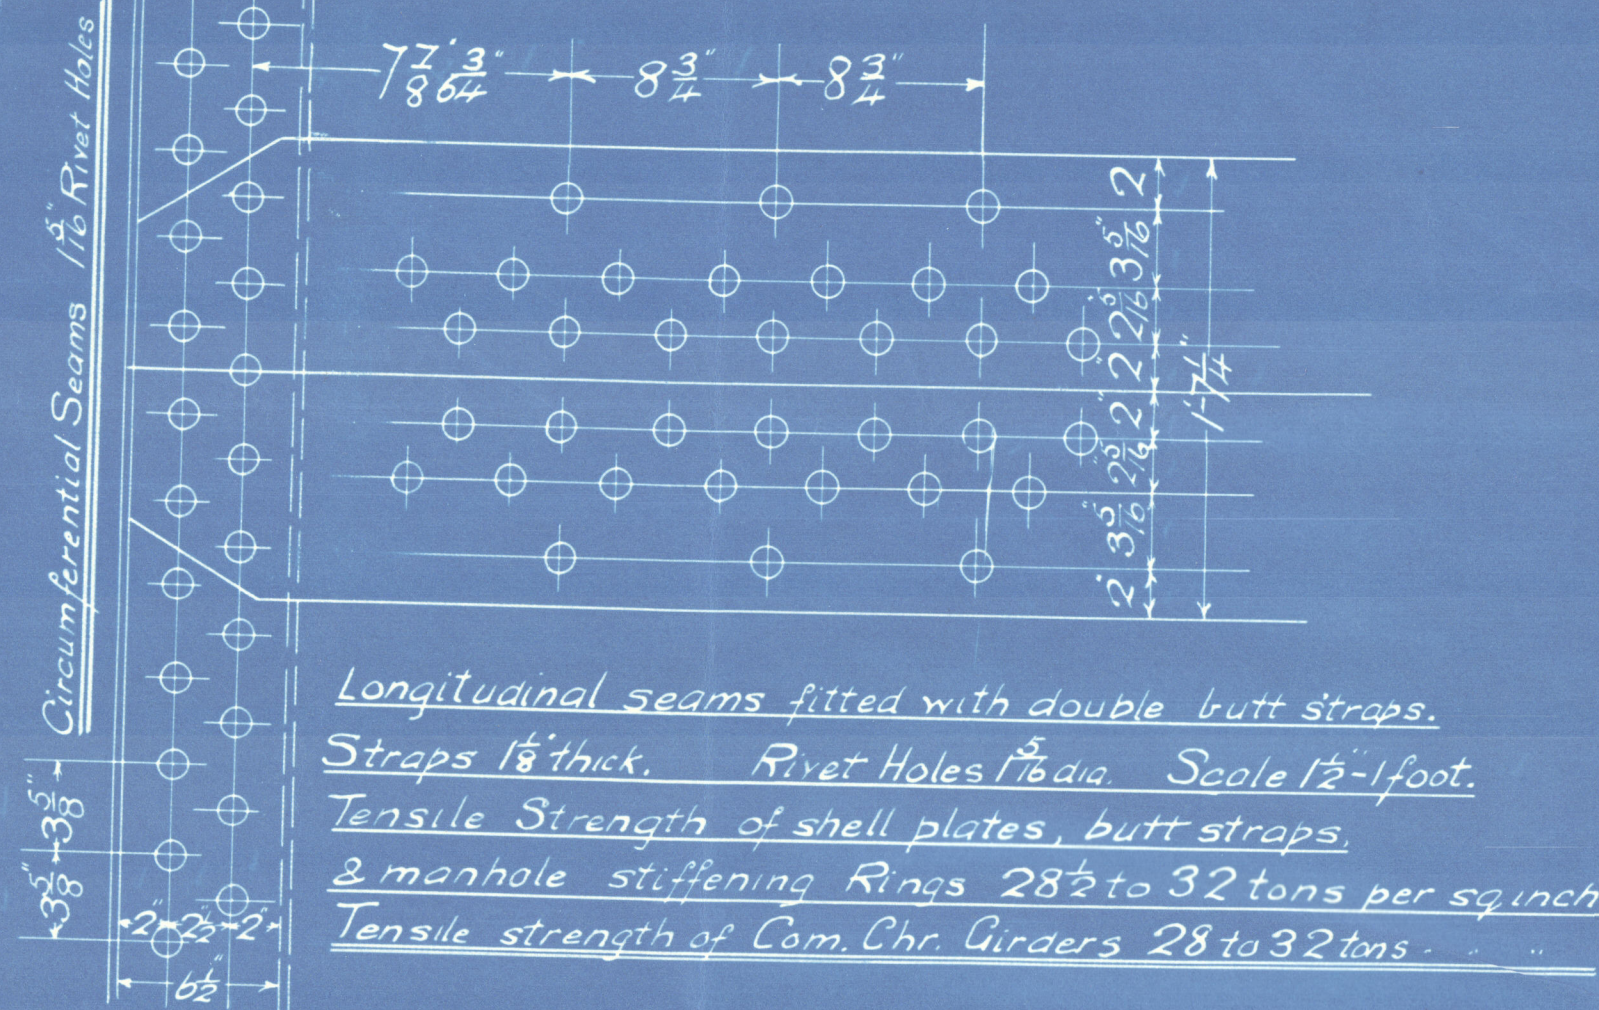 Circumferential Seams 1 5/16" Rivet Holes
7 7/8" 6 3/4" 8 3/4" 8 3/4"
2
3 5/16"
2 5/16"
2"
2"
2 5/16"
3 5/16"
2"
1'-7 1/4"
3 5/8"
3 5/8"
2" 2 1/2" 2"
6 1/2"
Longitudinal seams fitted with double butt straps.
Straps 1 1/8" thick. Rivet Holes 1 5/16 dia. Scale 1 1/2"-1 foot.
Tensile Strength of shell plates, butt straps,
& manhole stiffening Rings 28 1/2 to 32 tons per sq inch
Tensile strength of Com. Chr. Girders 28 to 32 tons " " "